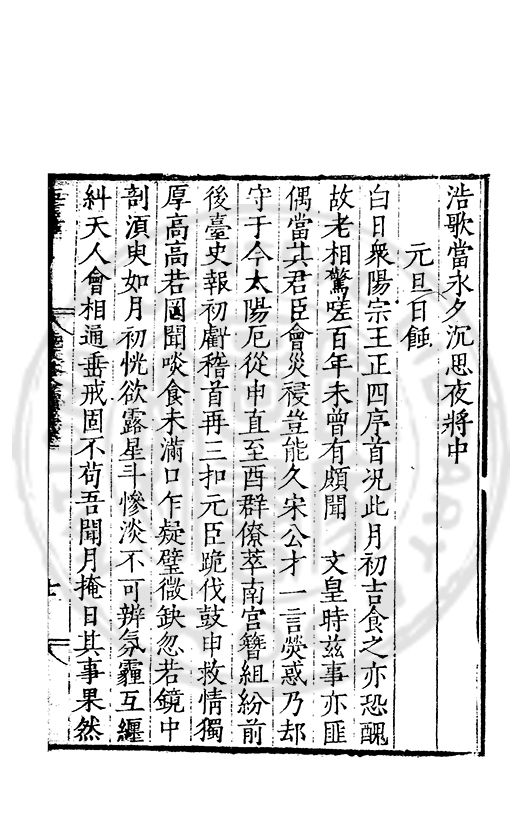 浩歌當永夕沉思夜將中
元旦日蝕
白日衆陽宗王正四序首况此月初吉食之亦恐醜
故老相驚嗟百年未曾有頗聞　文皇時兹事亦匪
偶當其君臣會災祲豈能久宋公才一言熒惑乃却
守于今太陽厄從申直至酉群僚萃南宫簪組紛前
後臺史報初虧稽首再三扣元臣跪伐鼓申救情獨
厚高高若罔聞啖食未滿口乍疑璧微缺忽若鏡中
剖湏臾如月初恍欲露星斗慘淡不可辨氛霾互纒
糾天人會相通垂戒固不苟吾聞月掩日其事果然